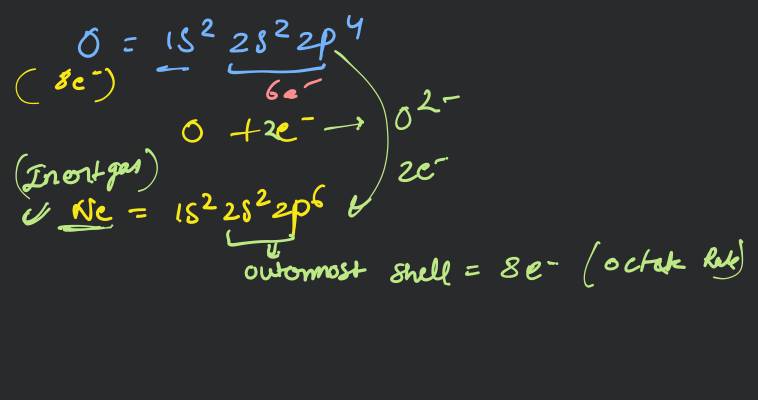 O = 1S² 2s² 2p⁴
(8e⁻) 6e⁻
O + 2e⁻ → O²⁻
2e⁻
(Inert gas)
Ne = 1S² 2s² 2p⁶
outormost shell = 8e⁻ (octate Rule)